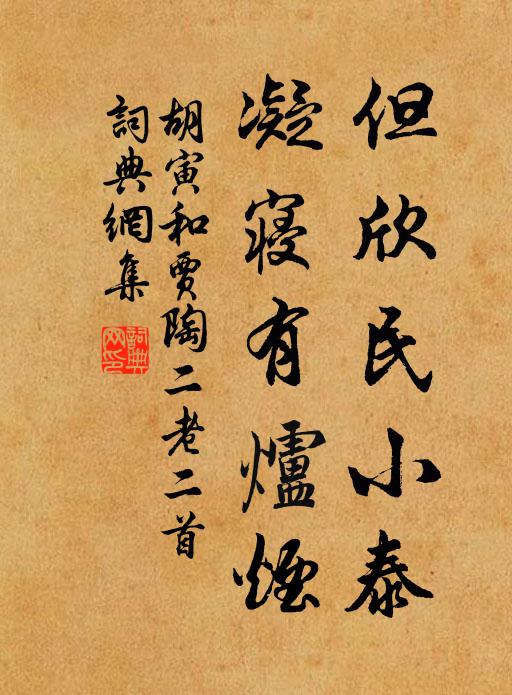 但欣民小泰
凝寝有爐煙
胡寅和賈陶二老二首
詞典網集
詞典網印